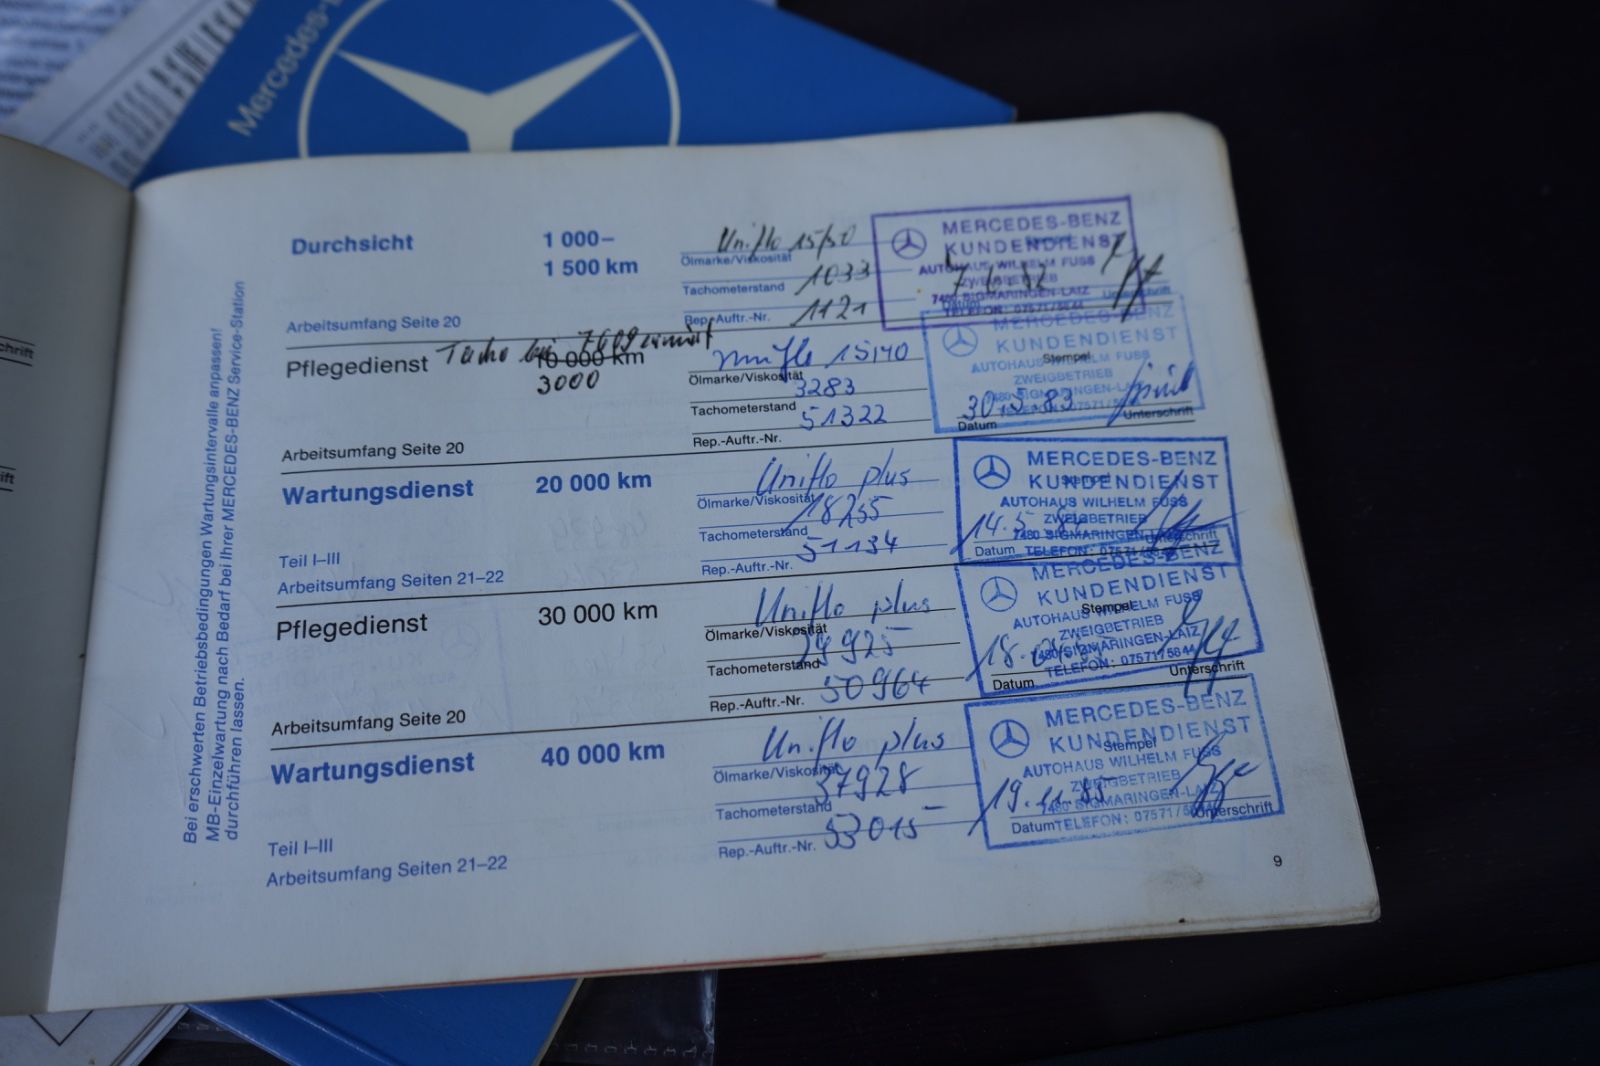 Mercedes-
Bei erschwerten Betriebsbedingungen Wartungsintervalle anpassen!
MB-Einzelwartung nach Bedarf bei Ihrer MERCEDES-BENZ Service-Station
durchführen lassen.
Durchsicht
1 000–
1 500 km
Arbeitsumfang Seite 20
Uniflo 15/50
Ölmarke/Viskosität
1033
Tachometerstand
1121
Rep.-Auftr.-Nr.
MERCEDES-BENZ
KUNDENDIENST
AUTOHAUS WILHELM FUSS
ZWEIGBETRIEB
7480 SIGMARINGEN-LAIZ
TELEFON: 07571/5844
Stempel
Datum
Unterschrift
Pflegedienst
Tacho bei 7609
10 000 km
3000
Arbeitsumfang Seite 20
15/40
Ölmarke/Viskosität
3283
Tachometerstand
51322
Rep.-Auftr.-Nr.
MERCEDES-BENZ
KUNDENDIENST
AUTOHAUS WILHELM FUSS
ZWEIGBETRIEB
7480 SIGMARINGEN-LAIZ
TELEFON: 07571/5844
Stempel
30.5.83
Datum
Unterschrift
Wartungsdienst
20 000 km
Teil I–III
Arbeitsumfang Seiten 21–22
Uniflo plus
Ölmarke/Viskosität
18255
Tachometerstand
51134
Rep.-Auftr.-Nr.
MERCEDES-BENZ
KUNDENDIENST
AUTOHAUS WILHELM FUSS
ZWEIGBETRIEB
7480 SIGMARINGEN-LAIZ
TELEFON: 07571/5844
Stempel
14.5.84
Datum
Unterschrift
Pflegedienst
30 000 km
Arbeitsumfang Seite 20
Uniflo plus
Ölmarke/Viskosität
29925
Tachometerstand
50964
Rep.-Auftr.-Nr.
MERCEDES-BENZ
KUNDENDIENST
AUTOHAUS WILHELM FUSS
ZWEIGBETRIEB
7480 SIGMARINGEN-LAIZ
TELEFON: 07571/5844
Stempel
Datum
Unterschrift
Wartungsdienst
40 000 km
Teil I–III
Arbeitsumfang Seiten 21–22
Uniflo plus
Ölmarke/Viskosität
37928
Tachometerstand
53015
Rep.-Auftr.-Nr.
MERCEDES-BENZ
KUNDENDIENST
AUTOHAUS WILHELM FUSS
ZWEIGBETRIEB
7480 SIGMARINGEN-LAIZ
TELEFON: 07571/5844
Stempel
19.11.85
Datum
Unterschrift
9